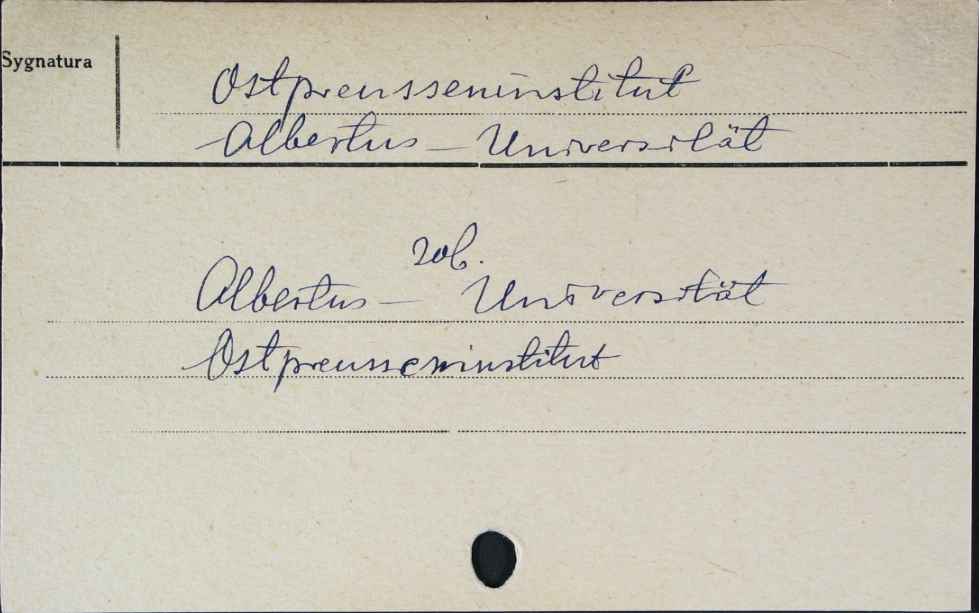 Sygnatura
Ostpreusseninstitut
Albertus - Universität
zob.
Albertus - Universität
Ostpreusseninstitut